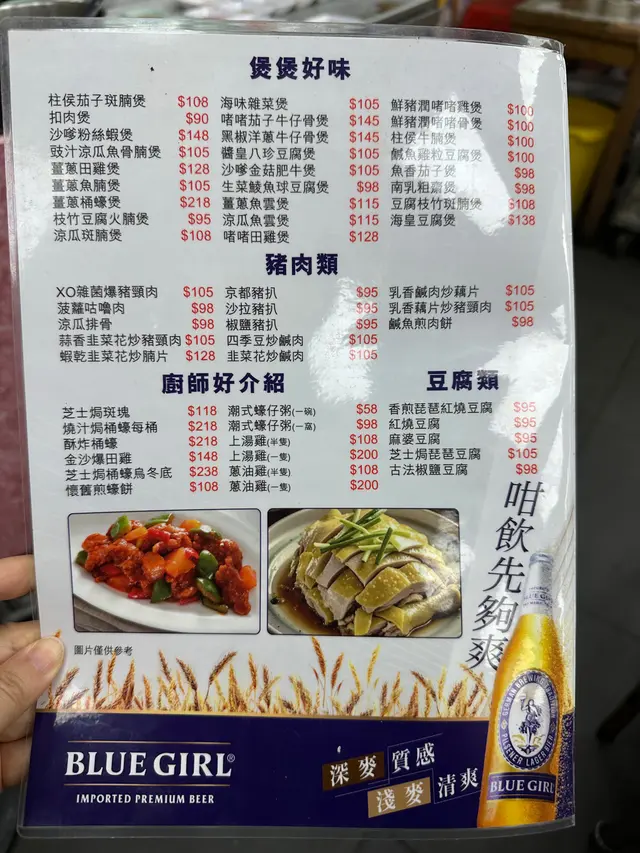 煲煲好味
柱侯茄子斑腩煲 $108 海味雜菜煲 $105 鮮豬潤啫啫雞煲 $100
扣肉煲 $90 啫啫茄子牛仔骨煲 $145 鮮豬潤啫啫骨煲 $100
沙嗲粉絲蝦煲 $148 黑椒洋蔥牛仔骨煲 $145 柱侯牛腩煲 $100
豉汁涼瓜魚骨腩煲 $105 醬皇八珍豆腐煲 $105 鹹魚雞粒豆腐煲 $100
薑蔥田雞煲 $128 沙嗲金菇肥牛煲 $105 魚香茄子煲 $98
薑蔥魚腩煲 $105 生菜鯪魚球豆腐煲 $98 南乳粗齋煲 $98
薑蔥桶蠔煲 $218 薑蔥魚雲煲 $115 豆腐枝竹斑腩煲 $108
枝竹豆腐火腩煲 $95 涼瓜魚雲煲 $115 海皇豆腐煲 $138
涼瓜斑腩煲 $108 啫啫田雞煲 $128
豬肉類
XO雜菌爆豬頸肉 $105 京都豬扒 $95 乳香鹹肉炒藕片 $105
菠蘿咕嚕肉 $98 沙拉豬扒 $95 乳香藕片炒豬頸肉 $105
涼瓜排骨 $98 椒鹽豬扒 $95 鹹魚煎肉餅 $98
蒜香韭菜花炒豬頸肉 $105 四季豆炒鹹肉 $105
蝦乾韭菜花炒腩片 $128 韭菜花炒鹹肉 $105
廚師好介紹 豆腐類
芝士焗斑塊 $118 潮式蠔仔粥(一碗) $58 香煎琵琶紅燒豆腐 $95
燒汁焗桶蠔每桶 $218 潮式蠔仔粥(一窩) $98 紅燒豆腐 $95
酥炸桶蠔 $218 上湯雞(半隻) $108 麻婆豆腐 $95
金沙爆田雞 $148 上湯雞(一隻) $200 芝士焗琵琶豆腐 $105
芝士焗桶蠔烏冬底 $238 蔥油雞(半隻) $108 古法椒鹽豆腐 $98
懷舊煎蠔餅 $108 蔥油雞(一隻) $200
咁飲先夠爽
圖片僅供參考
BLUE GIRL®
IMPORTED PREMIUM BEER
深麥質感
淺麥清爽
BLUE GIRL
PILSENER LAGER BEER
BLUE GIRL